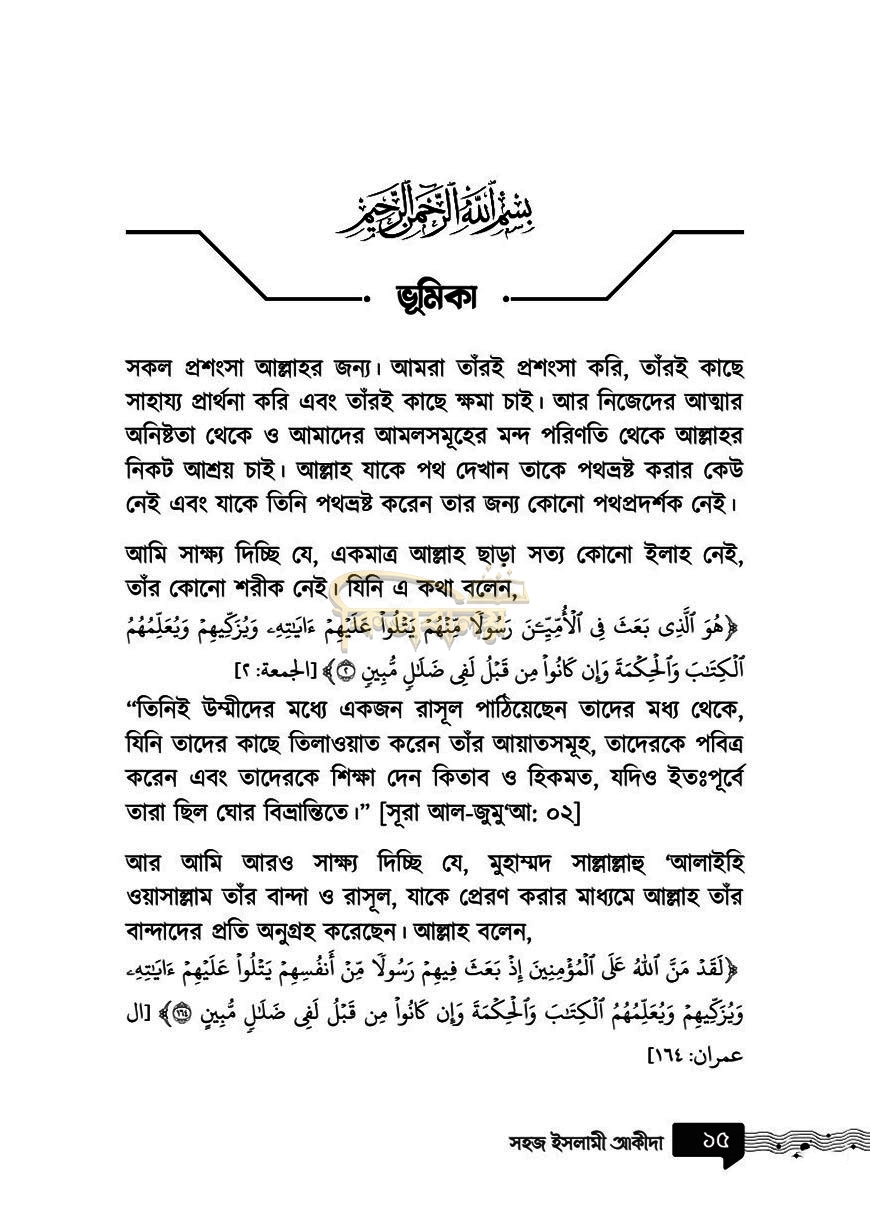 بسم الله الرحمن الرحيم
ভূমিকা
সকল প্রশংসা আল্লাহর জন্য। আমরা তাঁরই প্রশংসা করি, তাঁরই কাছে
সাহায্য প্রার্থনা করি এবং তাঁরই কাছে ক্ষমা চাই। আর নিজেদের আত্মার
অনিষ্টতা থেকে ও আমাদের আমলসমূহের মন্দ পরিণতি থেকে আল্লাহর
নিকট আশ্রয় চাই। আল্লাহ যাকে পথ দেখান তাকে পথভ্রষ্ট করার কেউ
নেই এবং যাকে তিনি পথভ্রষ্ট করেন তার জন্য কোনো পথপ্রদর্শক নেই।
আমি সাক্ষ্য দিচ্ছি যে, একমাত্র আল্লাহ ছাড়া সত্য কোনো ইলাহ নেই,
তাঁর কোনো শরীক নেই। যিনি এ কথা বলেন,
﴿هُوَ ٱلَّذِى بَعَثَ فِى ٱلْأُمِّيِّـۧنَ رَسُولًا مِّنْهُمْ يَتْلُوا۟ عَلَيْهِمْ ءَايَـٰتِهِۦ وَيُزَكِّيهِمْ وَيُعَلِّمُهُمُ
ٱلْكِتَـٰبَ وَٱلْحِكْمَةَ وَإِن كَانُوا۟ مِن قَبْلُ لَفِى ضَلَـٰلٍ مُّبِينٍ ٢﴾ [الجمعة: ٢]
“তিনিই উম্মীদের মধ্যে একজন রাসূল পাঠিয়েছেন তাদের মধ্য থেকে,
যিনি তাদের কাছে তিলাওয়াত করেন তাঁর আয়াতসমূহ, তাদেরকে পবিত্র
করেন এবং তাদেরকে শিক্ষা দেন কিতাব ও হিকমত, যদিও ইতঃপূর্বে
তারা ছিল ঘোর বিভ্রান্তিতে।” [সূরা আল-জুমু‘আ: ০২]
আর আমি আরও সাক্ষ্য দিচ্ছি যে, মুহাম্মদ সাল্লাল্লাহু ‘আলাইহি
ওয়াসাল্লাম তাঁর বান্দা ও রাসূল, যাকে প্রেরণ করার মাধ্যমে আল্লাহ তাঁর
বান্দাদের প্রতি অনুগ্রহ করেছেন। আল্লাহ বলেন,
﴿لَقَدْ مَنَّ ٱللَّهُ عَلَى ٱلْمُؤْمِنِينَ إِذْ بَعَثَ فِيهِمْ رَسُولًا مِّنْ أَنفُسِهِمْ يَتْلُوا۟ عَلَيْهِمْ ءَايَـٰتِهِۦ
وَيُزَكِّيهِمْ وَيُعَلِّمُهُمُ ٱلْكِتَـٰبَ وَٱلْحِكْمَةَ وَإِن كَانُوا۟ مِن قَبْلُ لَفِى ضَلَـٰلٍ مُّبِينٍ ١٦٤﴾ [ال
عمران: ١٦٤]
সহজ ইসলামী আকীদা ১৫